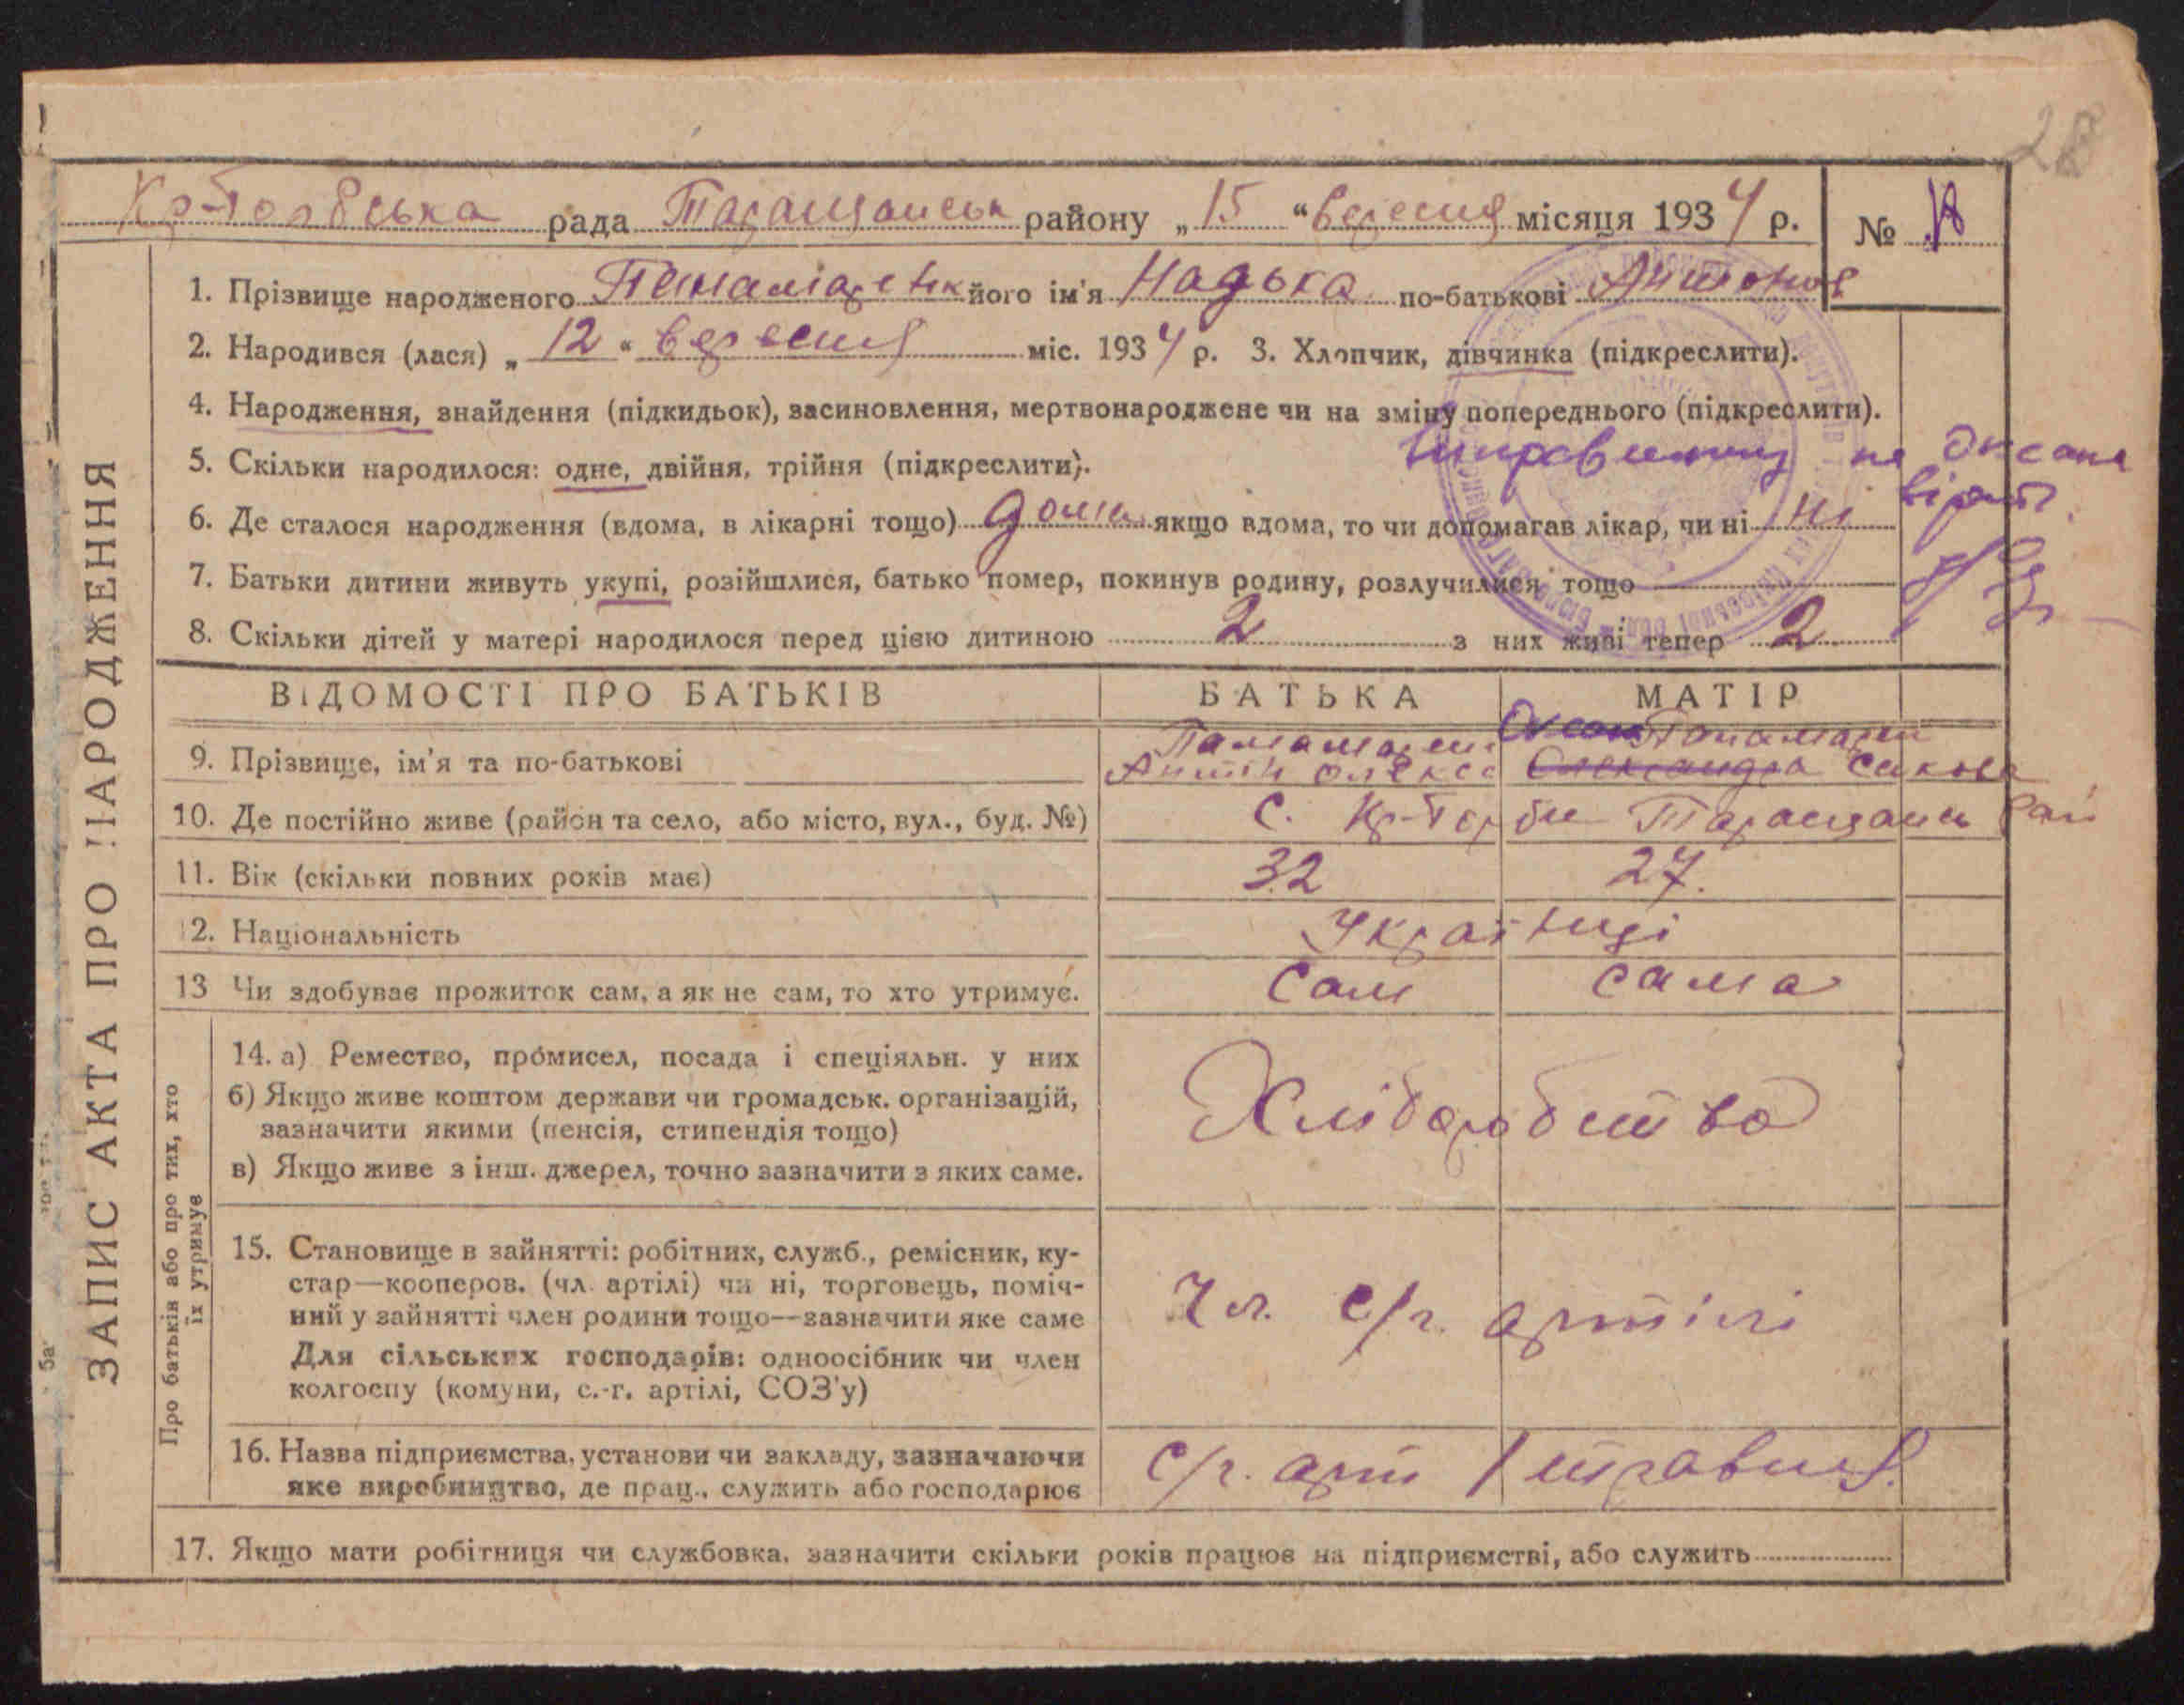 28
рада Таращанськ району „ 15 “ вересня місяця 1934 р. № 18
ЗАПИС АКТА ПРО НАРОДЖЕННЯ
1. Прізвище народженого його ім'я Надька по-батькові Антонов
2. Народився (лася) „ 12 “ вересня міс. 1934 р. 3. Хлопчик, дівчинка (підкреслити).
4. Народження, знайдення (підкидьок), засиновлення, мертвонароджене чи на зміну попереднього (підкреслити).
5. Скільки народилося: одне, двійня, трійня (підкреслити).
на Оксана
вірить
6. Де сталося народження (вдома, в лікарні тощо) дома якщо вдома, то чи допомагав лікар, чи ні ні
7. Батьки дитини живуть укупі, розійшлися, батько помер, покинув родину, розлучилися тощо
8. Скільки дітей у матері народилося перед цією дитиною 2 з них живі тепер 2
ВІДОМОСТІ ПРО БАТЬКІВ БАТЬКА МАТІР
9. Прізвище, ім'я та по-батькові Антін Олекс Оксана Олександра
10. Де постійно живе (район та село, або місто, вул., буд. №) с. Таращанськ рай
11. Вік (скільки повних років має) 32 27.
12. Національність Українці
13 Чи здобуває прожиток сам, а як не сам, то хто утримує. сам сама
Про батьків або про тих, хто
їх утримує
14. а) Ремество, промисел, посада і спеціяльн. у них
б) Якщо живе коштом держави чи громадськ. організацій,
зазначити якими (пенсія, стипендія тощо)
в) Якщо живе з інш. джерел, точно зазначити з яких саме.
Хліборобство
15. Становище в зайнятті: робітник, служб., ремісник, ку-
стар—кооперов. (чл. артілі) чи ні, торговець, поміч-
ний у зайнятті член родини тощо—зазначити яке саме
Для сільських господарів: одноосібник чи член
колгоспу (комуни, с.-г. артілі, СОЗ'у)
Чл. с/г. артілі
16. Назва підприємства, установи чи закладу, зазначаючи
яке виробництво, де прац., служить або господарює
с/г. арт 1 травня.
17. Якщо мати робітниця чи службовка, зазначити скільки років працює на підприємстві, або служить